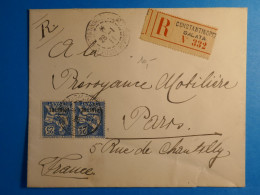 R
R
CONSTANTINOPLE
GALATA
N° 332
A la
Prévoyance Mobilière
Paris
5 Rue de Chantilly
France